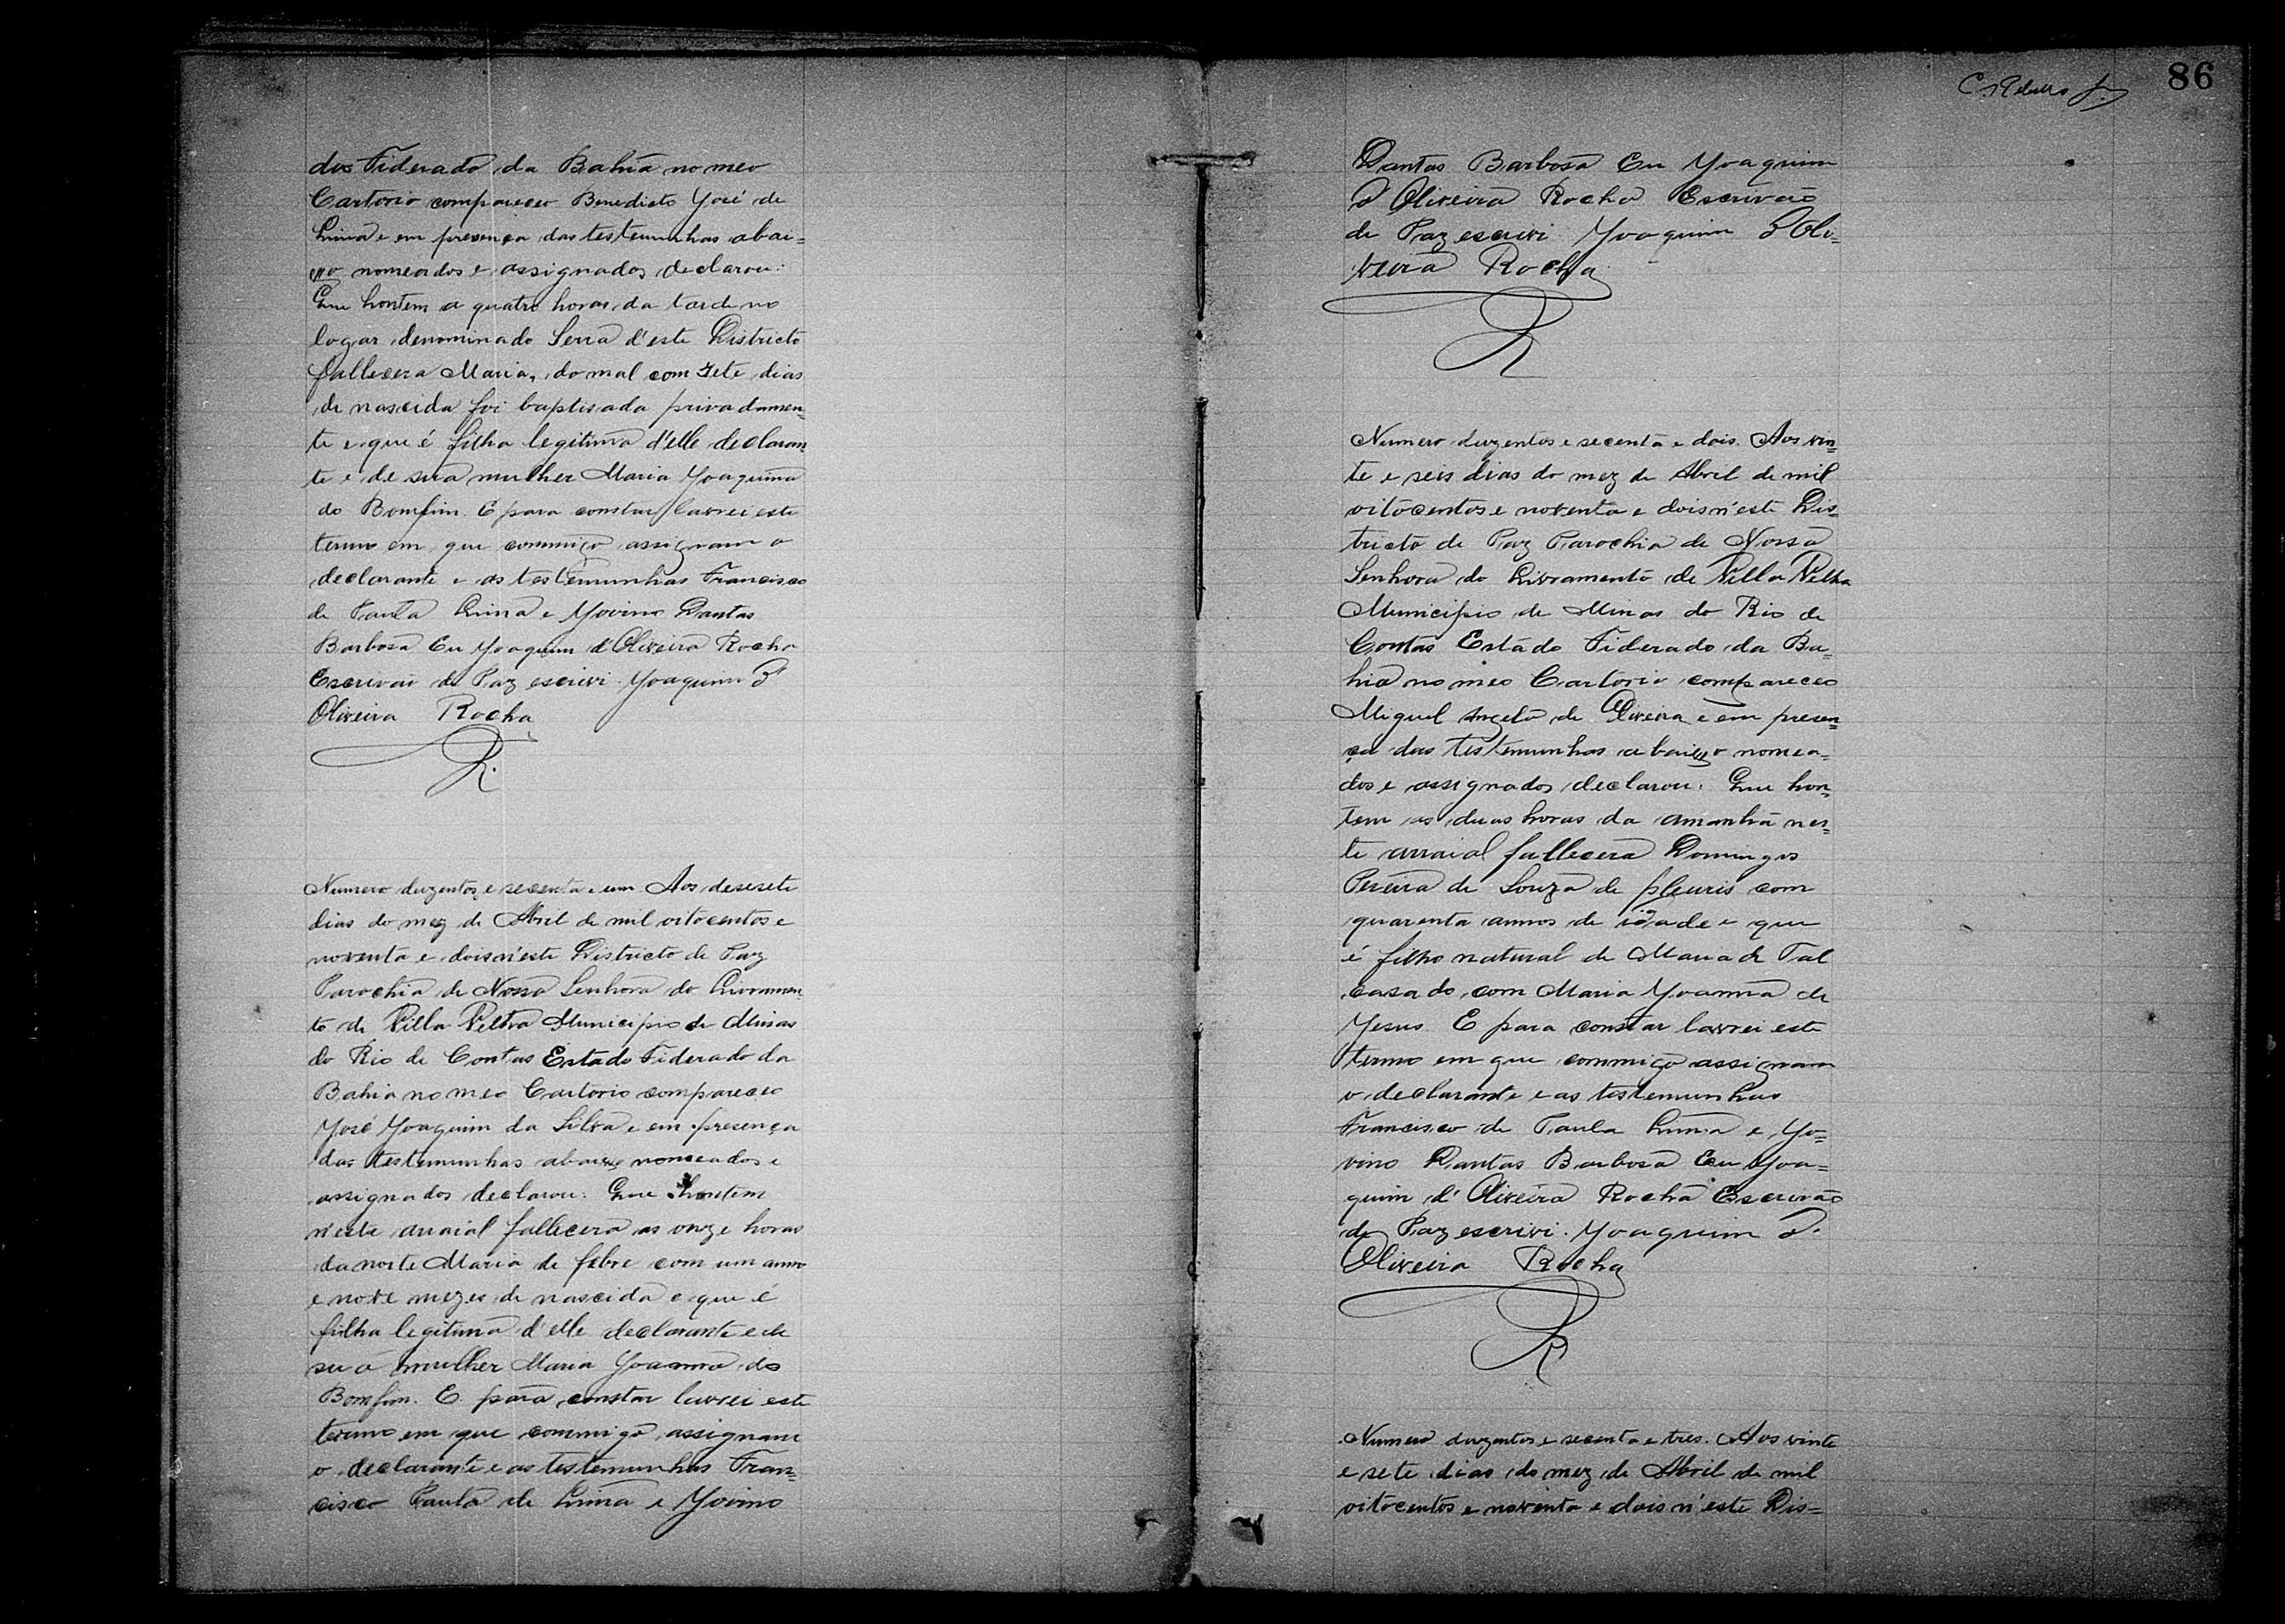 do Fiderado da Bahia no meo
Cartorio compareceo Benedicto José de
Lima e em presença das testemunhas abai=
xo nomeados e assignados declarou:
Que hontem a quatro horas da tarde no
logar denominado Serra d'este Districto
fallecera Maria, do mal com sete dias
de nascida foi baptisada privadamen=
te e que é filha legitima d'elle declaran=
te e de sua mulher Maria Joaquina
do Bomfim. E para constar lavrei este
termo em que commigo assignam o
declarante e as testemunhas Francisco
de Paula Lima e Jovino Dantas
Barbosa Eu Joaquim d'Oliveira Rocha
Escrivão de Paz escrivi. Joaquim d'
Oliveira Rocha
R.
Numero duzentos e secenta e um Aos desesete
dias do mez de Abril de mil oitocentos e
noventa e dois n'este Districto de Paz
Parochia de Nossa Senhora do Livramen=
to de Villa Velha Municipio de Minas
do Rio de Contas Estado Fiderado da
Bahia no meo Cartorio compareceo
José Joaquim da Silva e em presença
das testemunhas abaixo nomeados e
assignados declarou: Que hontem
n'este arraial fallecera as onze horas
da noite Maria de febre com um anno
e nove mezes de nascida e que é
filha legitima d'elle declarante e de
sua mulher Maria Joanna do
Bomfim. E para constar lavrei este
termo em que commigo assignam
o declarante e as testemunhas Fran=
cisco Paula de Lima e Jovino
86
Dantas Barbosa Eu Joaquim
d'Oliveira Rocha Escrivão
de Paz escrivi Joaquim d'Oli=
veira Rocha
R
Numero duzentos e secenta e dois. Aos vin=
te e seis dias do mez de Abril de mil
oitocentos e noventa e dois n'este Dis=
tricto de Paz Parochia de Nossa
Senhora do Livramento de Villa Velha
Municipio de Minas do Rio de
Contas Estado Fiderado da Ba=
hia no meo Cartorio compareceo
Miguel Angelo de Oliveira e em presen=
ça das testemunhas abaixo nomea=
dos e assignados declarou: Que hon=
tem as duas horas da amanhã nes=
te arraial fallecera Domingos
Pereira de Souza de pleuris com
quarenta annos de idade e que
é filho natural de Maria de Tal
casado com Maria Joanna de
Jesus. E para constar lavrei este
termo em que commigo assignam
o declarante e as testemunhas
Francisco de Paula Lima e Jo=
vino Dantas Barbosa Eu Joa=
quim d'Oliveira Rocha Escrivão
de Paz escrivi. Joaquim d'
Oliveira Rocha
R
Numero duzentos e secenta e tres. Aos vinte
e sete dias do mez de Abril de mil
oitocentos e noventa e dois n'este Dis=